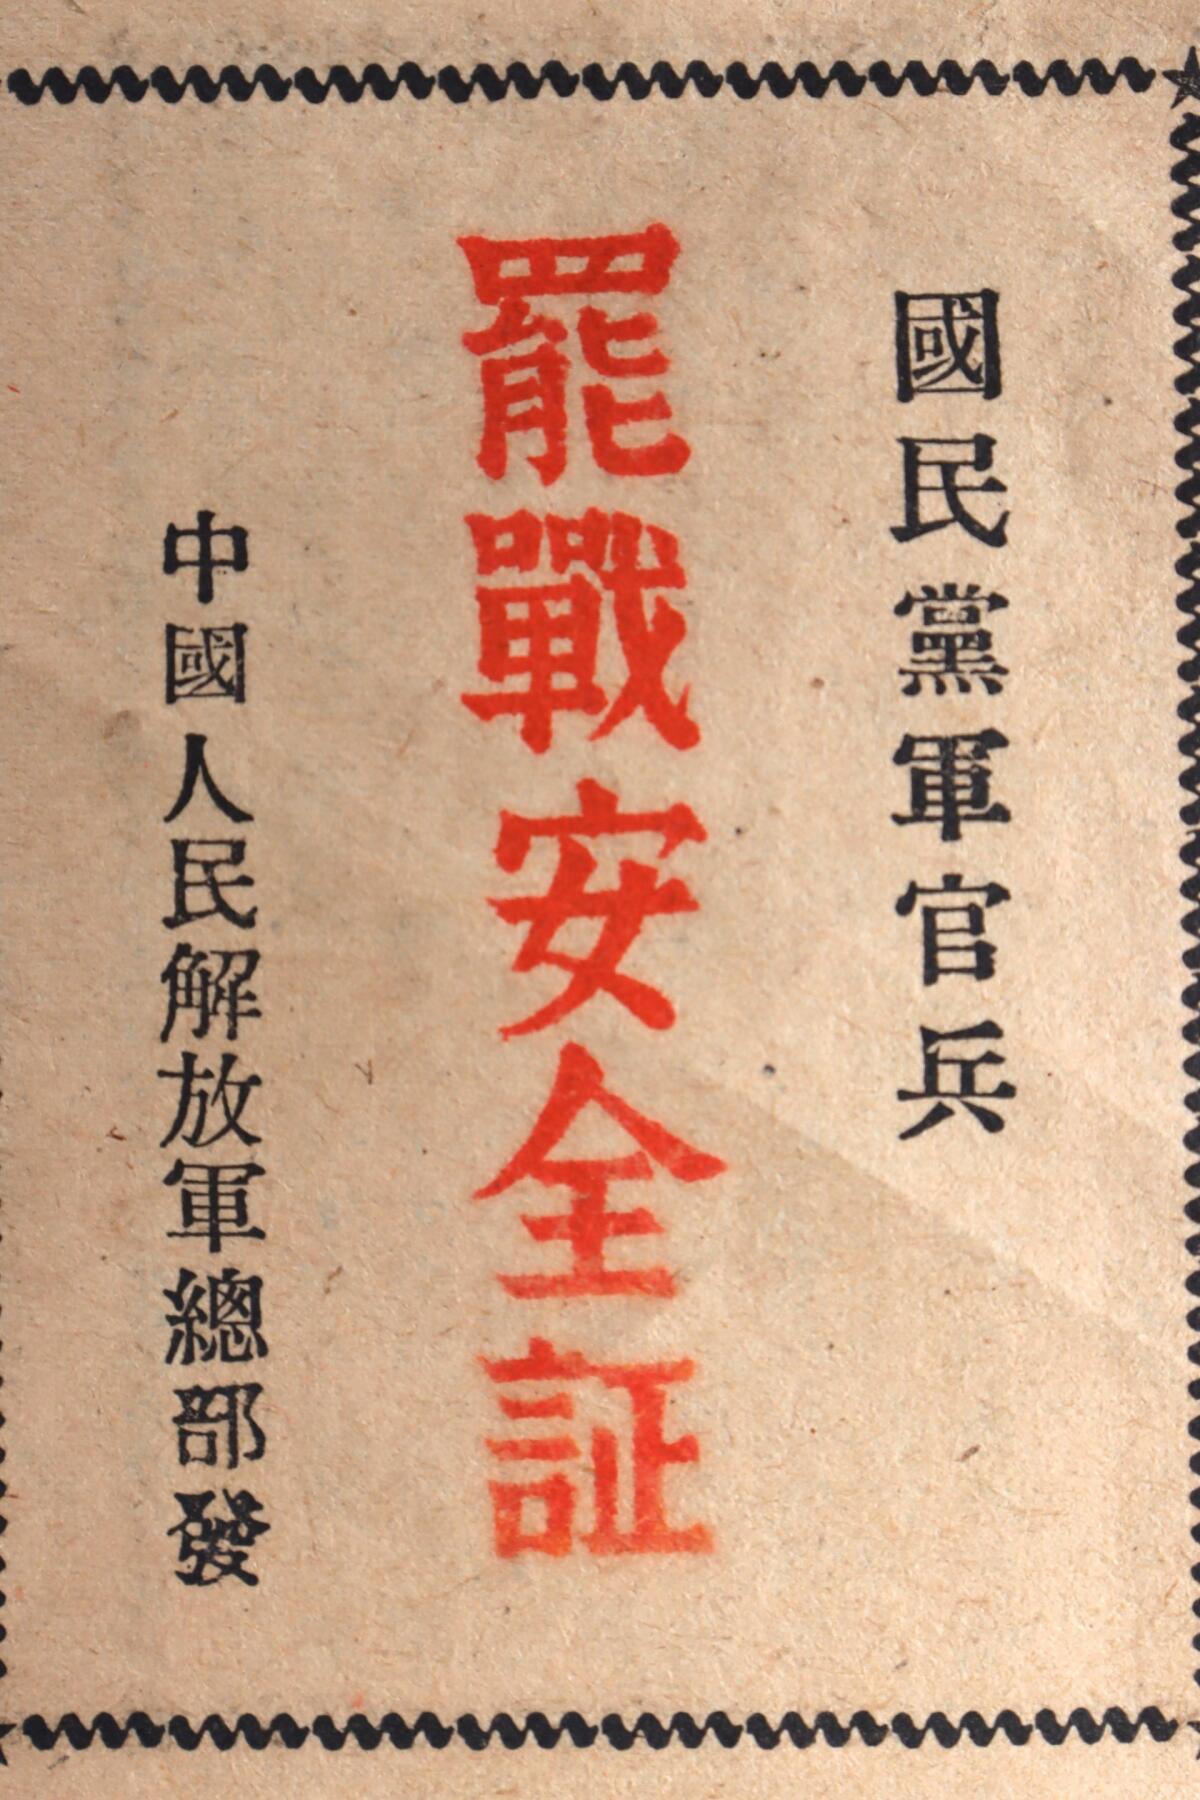 國民黨軍官兵
罷戰安全証
中國人民解放軍總部發